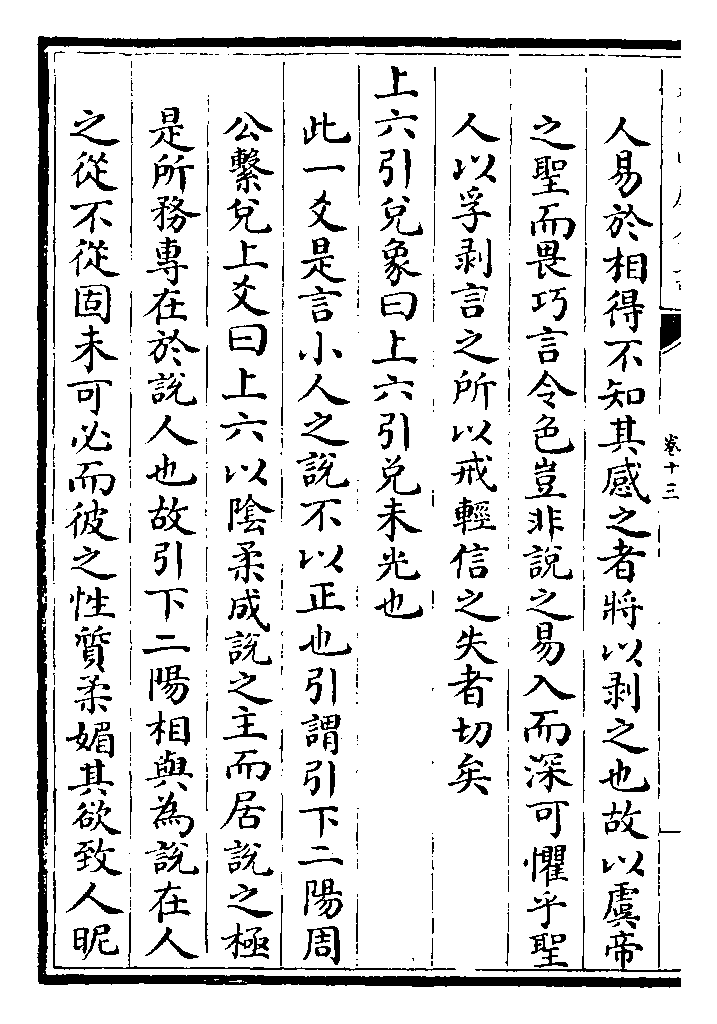 卷十三
人易於相得不知其感之者將以剥之也故以虞帝
之聖而畏巧言令色豈非說之易入而深可懼乎聖
人以孚剥言之所以戒輕信之失者切矣
上六引兌象曰上六引兌未光也
此一爻是言小人之說不以正也引謂引下二陽周
公繫兌上爻曰上六以陰柔成說之主而居說之極
是所務專在於說人也故引下二陽相與為說在人
之從不從固未可必而彼之性質柔媚其欲致人昵